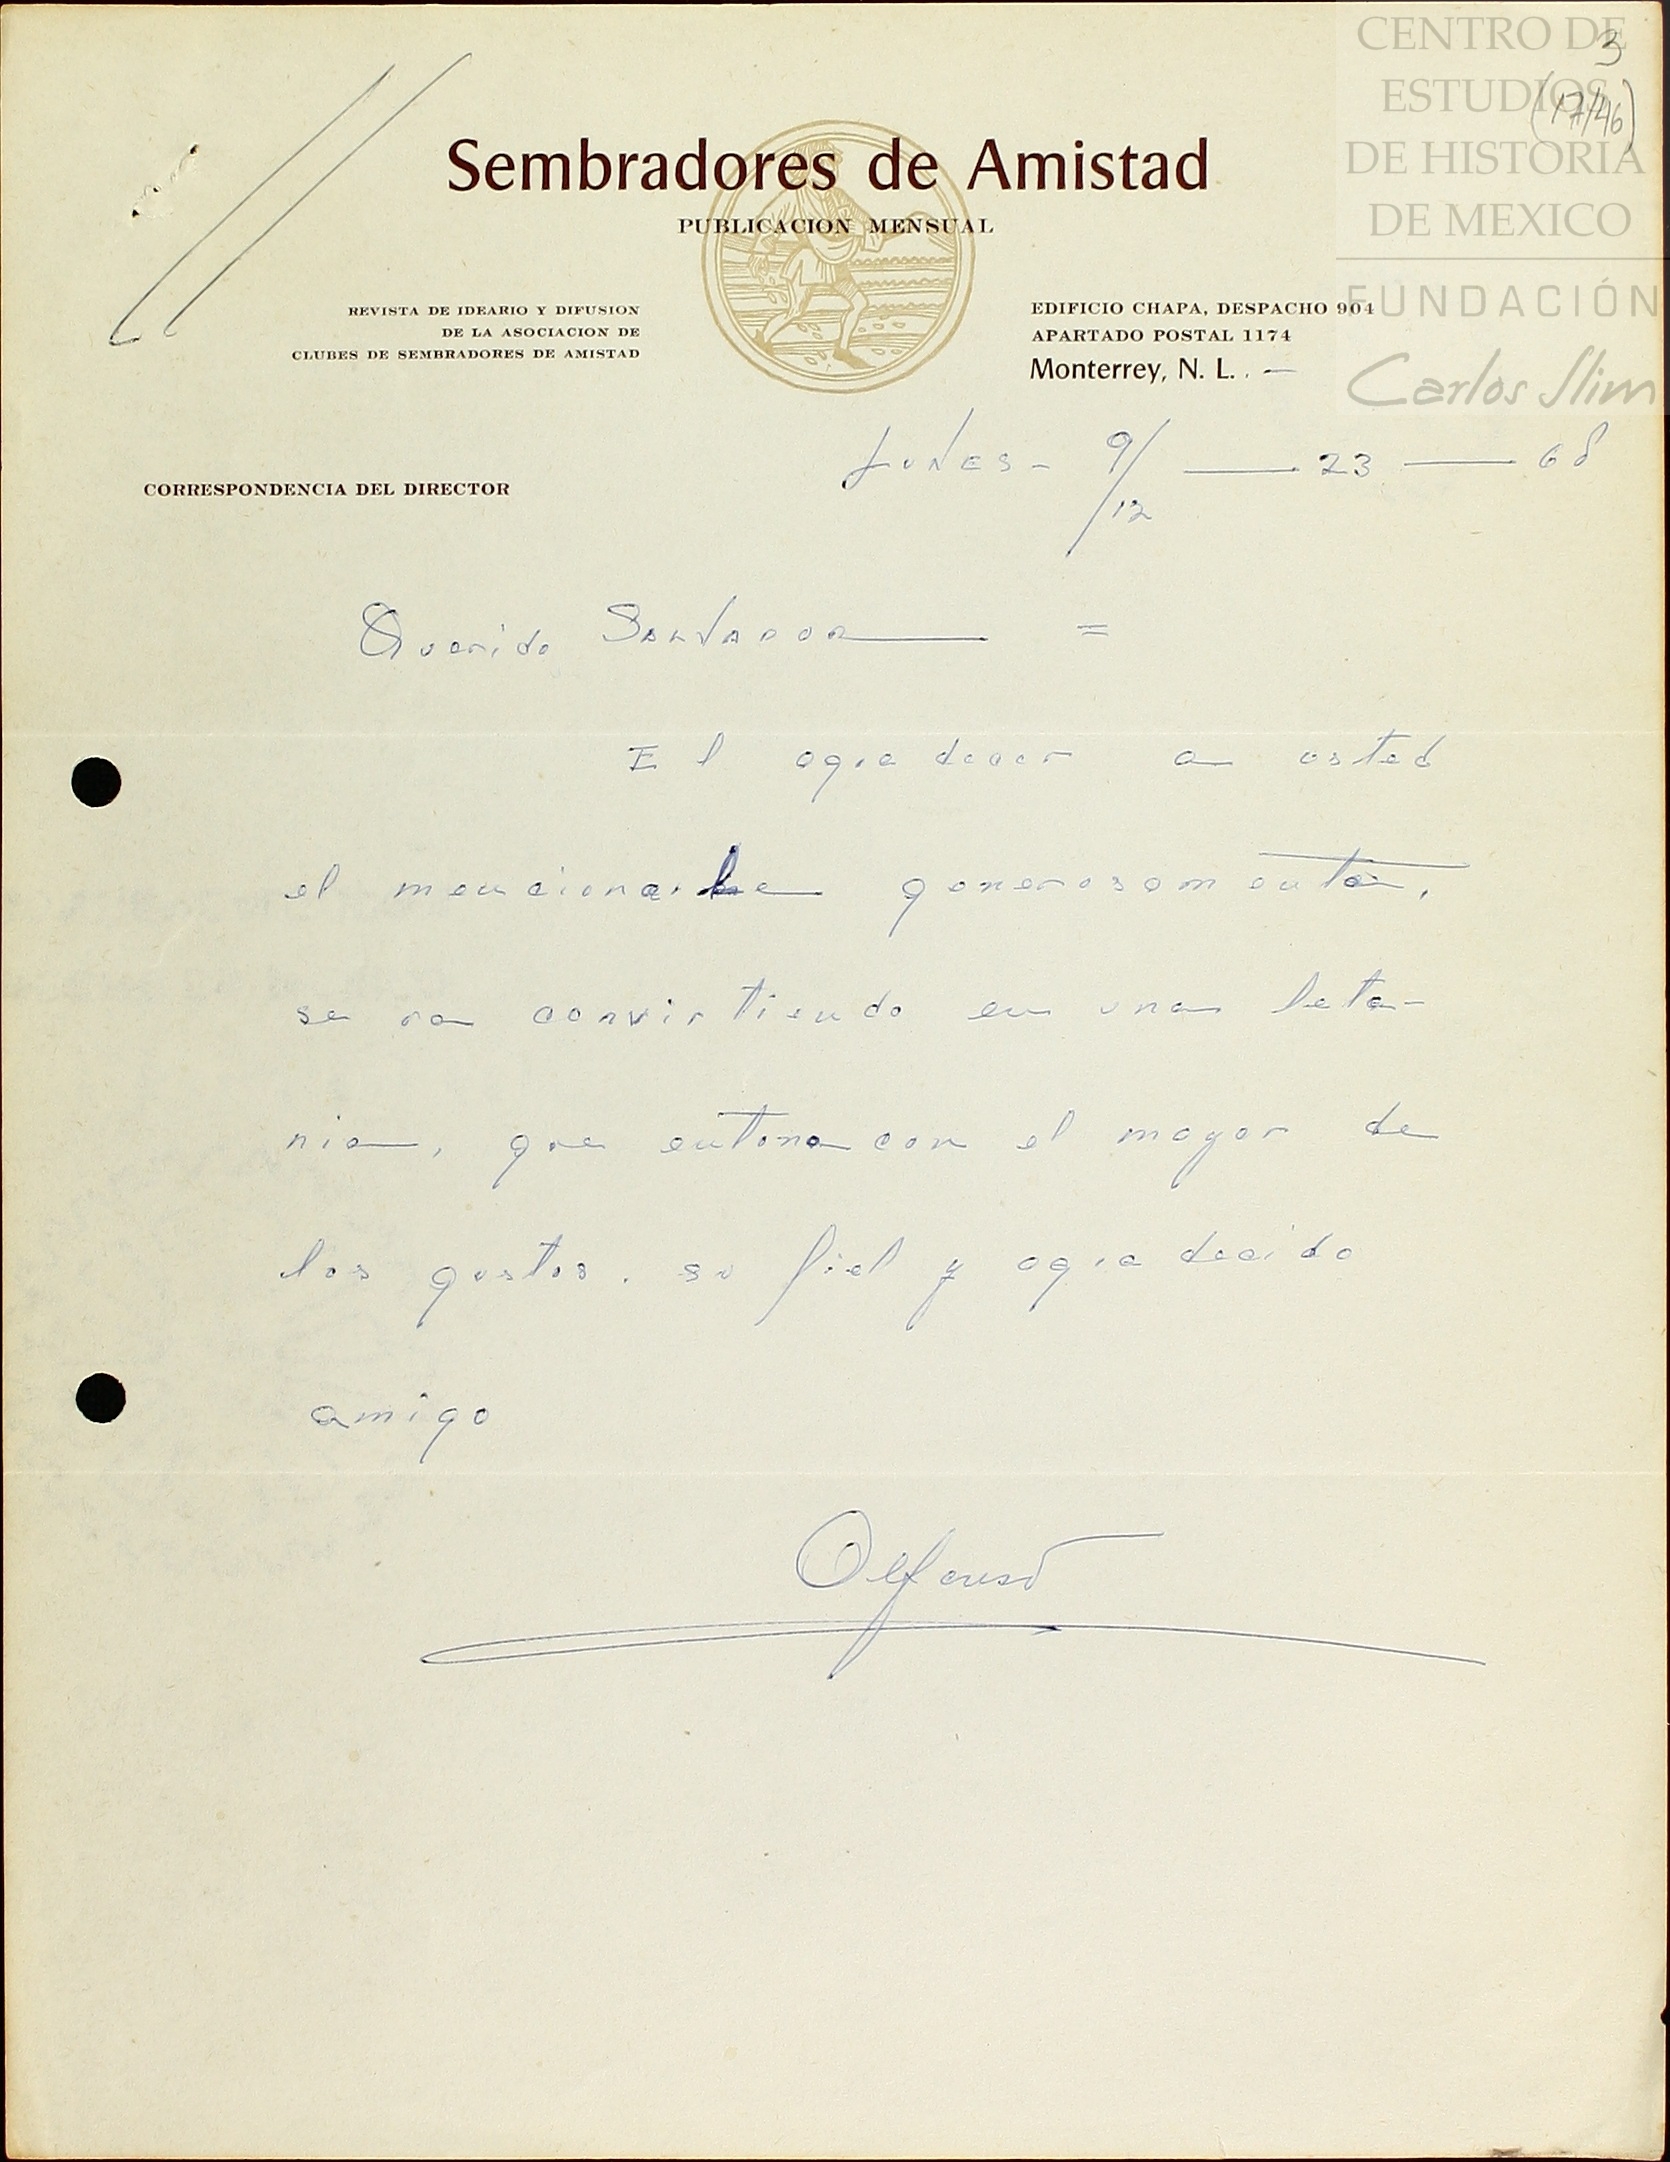 CENTRO DE
ESTUDIOS
DE HISTORIA
DE MEXICO
FUNDACIÓN
Carlos Slim
3
(17/46)
Sembradores de Amistad
PUBLICACION MENSUAL
REVISTA DE IDEARIO Y DIFUSION
DE LA ASOCIACION DE
CLUBES DE SEMBRADORES DE AMISTAD
EDIFICIO CHAPA, DESPACHO 904
APARTADO POSTAL 1174
Monterrey, N. L. . —
CORRESPONDENCIA DEL DIRECTOR
Lunes - 9/12 — 23 — 68
Querido Salvador — =
El agradecer a usted
el mencionar generosamente,
se va convirtiendo en una leta-
nia, que entona con el mayor de
los gustos. su fiel y agradecido
amigo
Alfonso